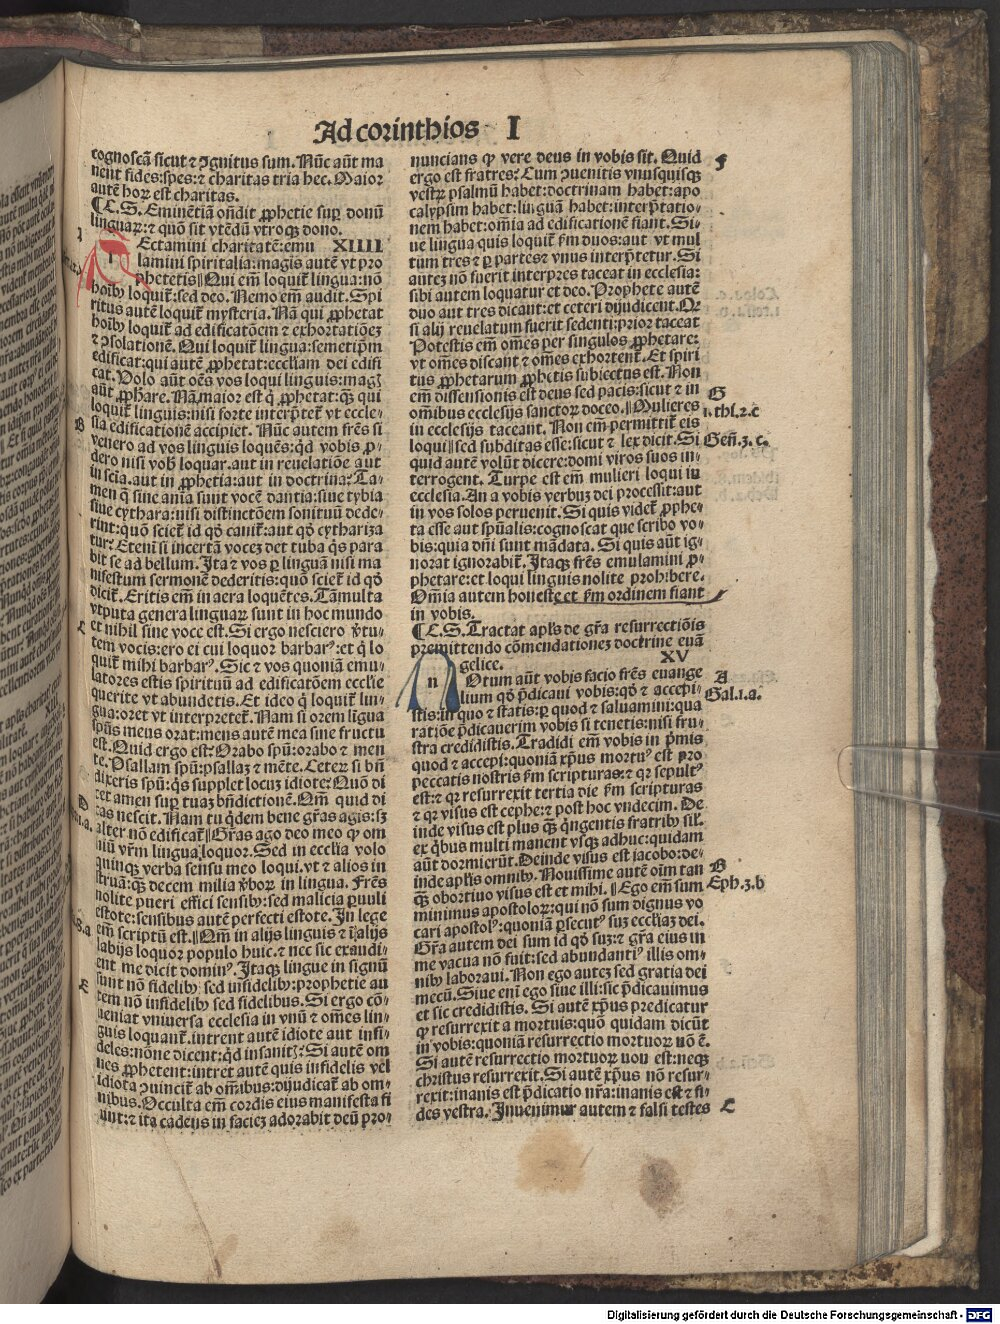 Ad corinthios I
cognoscã sicut ⁊ ꝯgnitus sum. Nũc aũt ma
nent fides: spes: ⁊ charitas tria hec. Maior
autẽ hoꝝ est charitas.
¶ C. S. Eminẽtiã oñdit ꝓphetie suꝑ donũ
linguaꝝ: ⁊ quõ sit vtẽdũ vtroqꝫ dono.
Ectamini charitatẽ: emu XIIII
lamini spiritalia: magis autẽ vt pro
phetetis ‖ Qui em̃ loquit̃ lingua: nõ
hoĩbꝰ loquit̃: sed deo. Nemo em̃ audit. Spi
ritus autẽ loquit̃ mysteria. Nã qui ꝓphetat
hoĩbꝰ loquit̃ ad edificatõem ⁊ exhortatiõeꝫ
⁊ ꝯsolationẽ. Qui loquit̃ lingua: semetip̃m
edificat: qui autẽ ꝓphetat: eccliam dei edifi
cat. Volo aũt oẽs vos loqui linguis: magꝭ
aũt ꝓphare. Nã maior est q̃ ꝓphetat: qᷓꝫ qui
loquit̃ linguis: nisi forte interp̃tet̃ vt eccle-
sia edificationẽ accipiet. Nũc autem frẽs si
venero ad vos linguis loquẽs: qͥd vobis ꝓ-
dero nisi vob̃ loquar. aut in reuelatiõe aut
in sciã. aut in ꝓphetia: aut in doctrina: Ta-
men q̃ sine anĩa sunt vocẽ dantia: siue tybia
siue cythara: nisi distinctõem sonituũ dede-
rint: quõ sciet̃ id qḋ canit̃: aut qḋ cythariza
tur: Etenĩ si incertã voceꝫ det tuba q̃s para
bit se ad bellum. Ita ⁊ vos ꝑ linguã nisi ma
nifestum sermonẽ dederitis: quõ sciet̃ id qḋ
dicit̃. Eritis em̃ in aera loquẽtes. Tã multa
vtputa genera linguaꝝ sunt in hoc mundo
et nihil sine voce est. Si ergo nesciero v̓tu-
tem vocis: ero ei cui loquor barbarꝰ: et q̃ lo
quit̃ mihi barbarꝰ. Sic ⁊ vos quoniã emu-
latores estis spirituũ ad edificatõem ecclie
querite vt abundetis. Et ideo q̃ loquit̃ lin-
gua: oret vt interpretet̃. Nam si orem lĩgua
spũs meus orat: mens autẽ mea sine fructu
est. Quid ergo est: Orabo spũ: orabo ⁊ men
te. Psallam spũ: psallaꝫ ⁊ mẽte. Ceteꝝ si bñ
dixeris spũ: q̃s supplet locuꝫ idiote: Quõ di
cet amen suꝑ tuaꝫ bñdictionẽ. Qm̃ quid di
cas nescit. Nam tu q̃dem bene gr̃as agis: sꝫ
alter nõ edificat̃ ‖ Gr̃as ago deo meo ꝙ om
niũ vr̃m lingua loquor. Sed in ecclia volo
quinqꝫ verba sensu meo loqui. vt ⁊ alios in
struã: qᷓꝫ decem milia v̓boꝝ in lingua. Frẽs
nolite pueri effici sensibꝰ: sed malicia ꝑuuli
estote: sensibus autẽ perfecti estote. In lege
em̃ scriptũ est. ‖ Qm̃ in alijs linguis ⁊ ĩ alijs
labijs loquor populo huic. ⁊ nec sic exaudi-
ent me dicit dominꝰ. Itaqꝫ lingue in signũ
sunt nõ fidelibꝰ sed infidelibꝰ: prophetie au
tem nõ infidelibꝰ sed fidelibus. Si ergo cõ-
ueniat vniuersa ecclesia in vnũ ⁊ om̃es lin-
guis loquant̃. intrent autẽ idiote aut infi-
deles: nõne dicent: qͥd insanitꝭ: Si autẽ om
nes ꝓphetent: intret autẽ quis infidelis vel
idiota ꝯuincit̃ ab om̃ibus: dijudicat̃ ab om-
nibus. Occulta em̃ cordis eius manifesta fi
unt: ⁊ ita cadẽs in facieꝫ adorabit deũ pro-
nuncians ꝙ vere deus in vobis sit. Quid
ergo est fratres: Cum ꝯuenitis vnusquisqꝫ
vestꝝ psalmũ habet: doctrinam habet: apo
calypsim habet: linguã habet: interp̃tatio-
nem habet: om̃ia ad edificationẽ fiant. Si-
ue lingua quis loquit̃ sm̃ duos: aut vt mul
tum tres ⁊ ꝑ partes ⁊ vnus interp̃tetur. Si
anteꝫ nõ fuerit interpres taceat in ecclesia:
sibi autem loquatur et deo. Prophete autẽ
duo aut tres dicant: et ceteri dijudicent. Qꝛ
si alij reuelatum fuerit sedenti: prior taceat
Potestis em̃ om̃es per singulos ꝓphetare:
vt om̃es discant ⁊ om̃es exhortent̃. Et spiri
tus ꝓphetarum ꝓphetis subiectus est. Non
em̃ dissensionis est deus sed pacis: sicut ⁊ in
om̃ibus ecclesijs sanctoꝝ doceo. ‖ Mulieres
in ecclesijs taceant. Non em̃ permittit̃ eis
loqui ‖ sed subditas esse: sicut ⁊ lex dicit. Si
quid autẽ volũt dicere: domi viros suos in-
terrogent. Turpe est em̃ mulieri loqui in
ecclesia. An a vobis verbuꝫ dei processit: aut
in vos solos peruenit. Si quis videt̃ ꝓphe-
ta esse aut spũalis: cognoscat que scribo vo-
bis: quia dñi sunt mãdata. Si quis aũt ig-
norat ignorabit̃. Itaqꝫ frẽs emulamini ꝓ-
phetare: et loqui linguis nolite prohibere.
Om̃ia autem honeste et sm̃ ordinem fiant
in vobis.
¶ C. S. Tractat apl̃s de gr̃a resurrectiõis
premittendo cõmendationeꝫ doctrine euã
gelice. XV
n Otum aũt vobis facio frẽs euange
lium qḋ p̃dicaui vobis: qḋ ⁊ accepi-
stis: in quo ⁊ statis: ꝑ quod ⁊ saluamini: qua
ratiõe p̃dicauerim vobis si tenetis: nisi fru-
stra credidistis. Tradidi em̃ vobis in p̃mis
quod ⁊ accepi: quoniã xp̃us mortuꝰ est pro
peccatis nostris sm̃ scripturas: ⁊ qꝛ sepultꝰ
est: ⁊ qꝛ resurrexit tertia die sm̃ scripturas
⁊ qꝛ visus est cephe: ⁊ post hoc vndecim. De
inde visus est plus qᷓꝫ q̃ngentis fratribꝰ sil̃.
ex q̃bus multi manent vsqꝫ adhuc: quidam
aũt dormierũt. Deinde visus est iacobo: de-
inde apl̃is omnibꝰ. Nouissime autẽ oĩm tan
qᷓꝫ obortiuo visus est et mihi. ‖ Ego em̃ sum
minimus apostoloꝝ: qui nõ sum dignus vo
cari apostolꝰ: quoniã ꝑsecutꝰ suꝫ eccliaꝫ dei.
Gr̃a autem dei sum id qḋ suꝫ: ⁊ gr̃a eius in
me vacua nõ fuit: sed abundantiꝰ illis om-
nibꝰ laboraui. Non ego auteꝫ sed gratia dei
mecũ. Siue enĩ ego siue illi: sic p̃dicauimus
et sic credidistis. Si autẽ xp̃us predicatur
ꝙ resurrexit a mortuis: quõ quidam dicũt
in vobis: quoniã resurrectio mortuoꝝ nõ ẽ.
Si autẽ resurrectio mortuoꝝ non est: neqꝫ
christus resurrexit. Si autẽ xp̃us nõ resur-
rexit: inanis est p̃dicatio nr̃a: inanis est ⁊ fi-
des vestra. Inuenimur autem ⁊ falsi testes
B
C
D
E
F
G
i. thi. 2. c
Geñ. 3. c.
A
Gal. 1. a.
B
Eph. 3. b
C
Digitalisierung gefördert durch die Deutsche Forschungsgemeinschaft - DFG